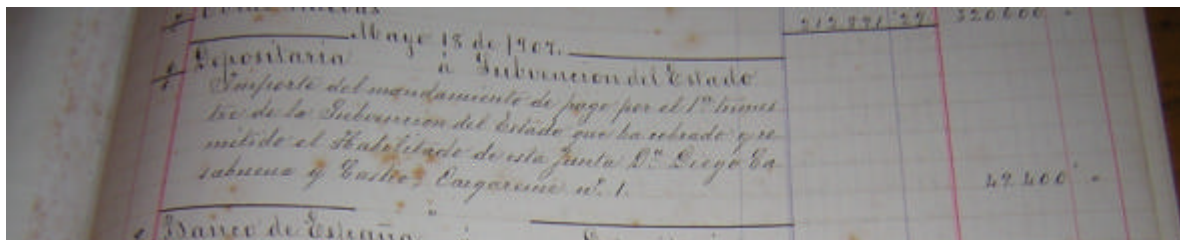 212.891 27 320.600 "
Mayo 18 de 1907.
Depositaria á Subvencion del Estado
Importe del mandamiento de pago por el 1er trimes
tre de la Subvencion del Estado que ha cobrado y re
mitido el Habilitado de esta Junta Dn. Diego Ca
sabuena y Castro, Cargareme nº. 1. 49.400 "
Banco de España